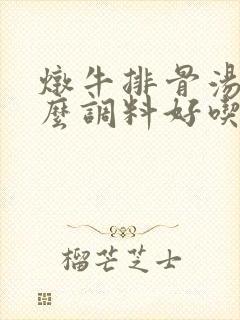 燉牛排骨湯
麼調料好喫
榴芒芝士